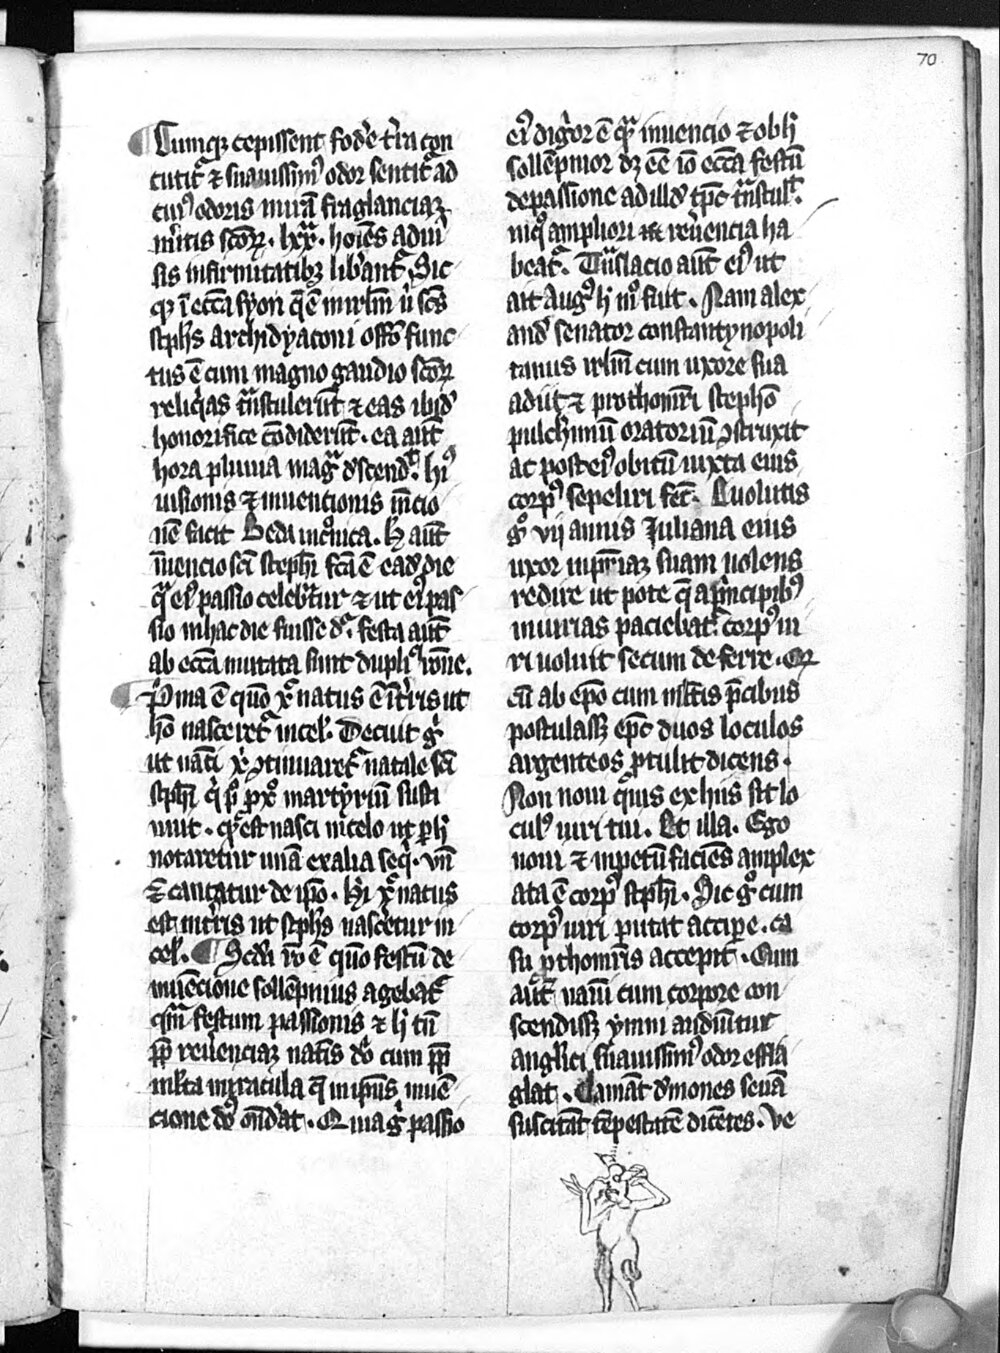 70
Cumq; cepissent fod'e t'ra con
cutit᷑ ⁊ suauissim᷒ odor sentit᷑ ad
cui᷒ odoris mirā fraglanciaʒ
m'itis scōꝝ · lxx · hoīes a diu'
sis infirmitatibʒ lib'ant᷑. Sic
qʒ ī ecc̄a syon q̄ ē in irl'm ū sc̄s
steph᷒s archidyaconi offō func
tus ē cum magno gaudio scōꝝ
reliq'as t̄nstulerūt ⁊ eas ibid'
honorifice cōdiderūt · ea aūt
hora pluuia mag᷑ d'scend᷑. hi᷒
uisionis ⁊ inuentionis m̄cio
nē facit Beda in cronica. h aūt
īuencio sc̄i steph̄i fc̄a ē ead' die
q᷑ ei᷒ passio celebr̄tur ⁊ ut ei᷒ pas
sio in hac die fuisse d'r. festa aūt
ab ecc̄a mutata sunt duplī rōne.
P'ma ē quō xp̄c natus ē ī t'ris ut
hō nasceret᷑ in cel'. Decuit g'
ut nat̄i xp̄i ↄtinuaret᷑ natale sc̄i
steph̄i q' p' p xō martyriū susti
nuit · qd̄ est nasci in celo ut p h'
notaretur unā ex alia seq' · vn̄
⁊ cantatur de ip̄o · H'i xp̄c natus
est in t'ris ut steph᷒s nasc'etur in
cel'. Scd'a rō ē quō festū de
inuēcione sollēpnius agebat᷑
q̄m festum passionis ⁊ h' tn̄
pp̄ reu'enciaʒ nat̄is dn̄i cum pp̄
ml'ta miracula q̄ in ip̄ius inuē
cione de᷒ on̄d'at · Qr mag' passio
ei᷒ dig'or ē q᷑ inuencio ⁊ ob h'
sollēpnior dʒ eē iō ecc̄a festū
de passione ad ill'd tp̄c t̄nstul᷑.
niq᷒ ampliori reu'encia ha
beat᷑. T̄nslacio aūt ei᷒ ut
ait aug᷒ h' mō fuit · Nam alex
and' senator constantynopoli
tanus irl'm cum uxore sua
adiit ⁊ prothom̄ri stephō
pulch'imū oratoriū ↄstruxit
ac post ei᷒ obitū iuxta eius
corp᷒ sepeliri fec̄. Euolutis
g° vij annis Juliana eius
uxor in p̄riaʒ suam uolens
redire ut pote q̄ a p'ncipibʒ
iniurias paciebat᷑. corp᷒ ui
ri uoluit secum deferre · Qr
cū ab ep̄o cum ml'tis p̄cibus
postulassʒ ep̄c duos loculos
argenteos ꝓtulit dicens ·
Non noui q'uis ex hiis sit lo
cul᷒ uiri tui. Et illa. Ego
noui ⁊ inpetū faciēs amplex
ata ē corp᷒ steph̄i. Sic g° cum
corp᷒ uiri putat accip'e. ca
su p̄thom̄ris accepit. Cum
aūt naui cum corpore con
scendissʒ ymni audiūtur
angl'ici suauissim᷒ odor effla
glat. Clamāt d'mones seuā
suscitāt tēpestatē dicētes. Ve